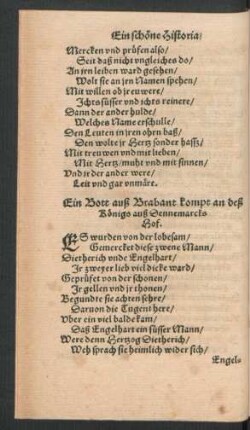 Ein schöne Historia/
Mercken vnd prüfen also/
Seit daß nicht vngleiches do/
An jen leiben ward gesehen/
Wolt sie an jen Namen spehen/
Mit willen ob jr euwere/
Ichts süsser vnd ichts reinere/
Dann der ander hulde/
Welches Name erschulle/
Den Leuten in jren ohrn baß/
Den wolte jr Hertz sonder hassz/
Mit treuwen vnd mit lieben/
Mit Hertz/muht vnd mit sinnen/
Vnd je der ander were/
Leit vnd gar vnmäre.
Ein Bott auß Brabant kompt an deß
Königs auß Dennemarcks
Hof.
ES wurden von der lobesam/
Gemercket diese zwene Mann/
Dietherich vnde Engelhart/
Jr zweyer lieb viel dicke ward/
Geprüfet von der schonen/
Jr gellen vnd jr thonen/
Begundte sie achten sehre/
Daruon die Tugent here/
Vber ein viel balde kam/
Daß Engelhart ein süsser Mann/
Were denn Hertzog Dietherich/
Weh sprach sie heimlich wider sich/
Engel-